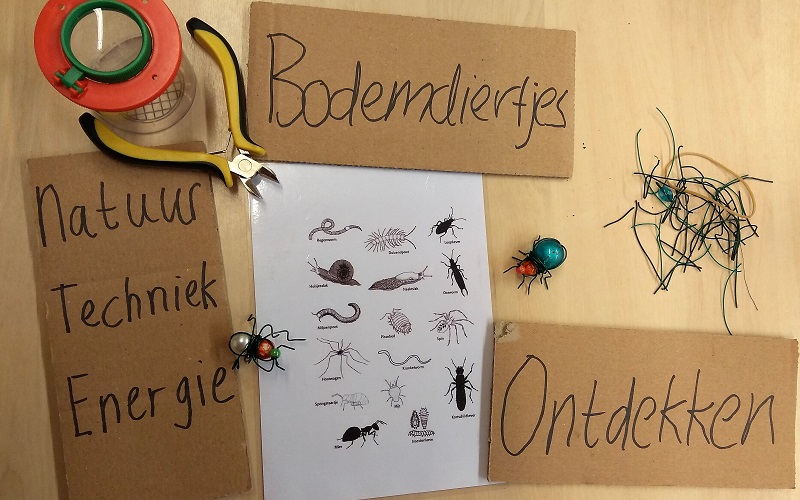 Bodemdiertjes
Natuur
Techniek
Energie
Regenworm
Duizendpoot
Loopkever
Huisjesslak
Naaktslak
Oorworm
Miljoenpoot
Pissebed
Spin
Hooiwagen
Springstaartje
Mijt
Kortschildkever
Mier
Ontdekken